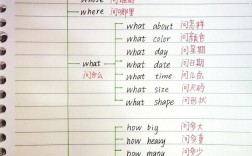 where 问哪里
what 问什么
what about 问怎样
what color 问颜色
what day 问星期
what date 问日期
what time 问几点
what size 问尺码
what shape 问形状
how big 问多大
how heavy 问多重
how many 问多少